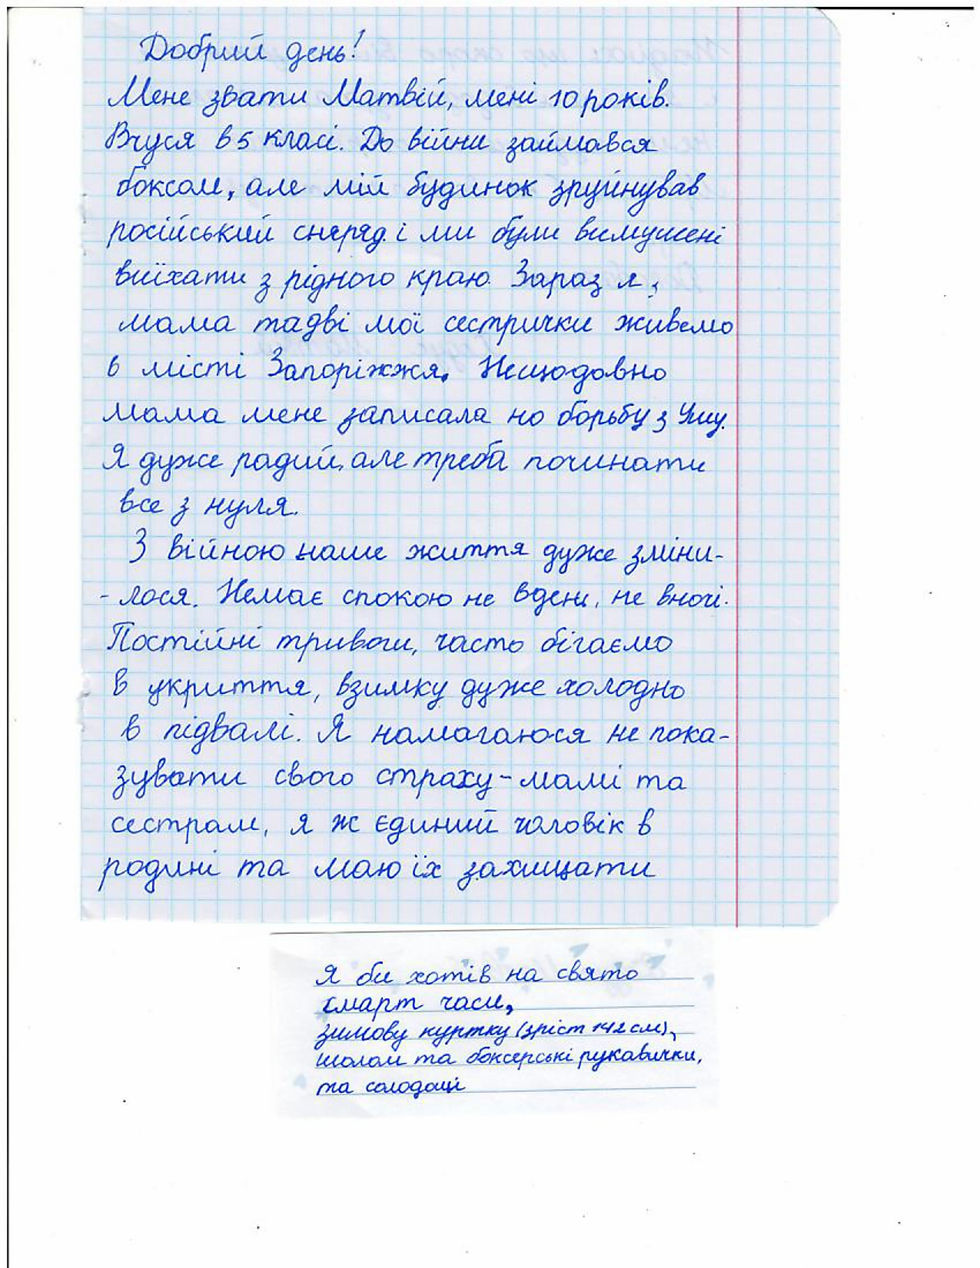 Добрий день!
Мене звати Матвій, мені 10 років.
Вчуся в 5 класі. До війни займався
боксом, але мій будинок зруйнував
російський снаряд і ми були вимушені
виїхати з рідного краю. Зараз я,
мама та дві мої сестрички живемо
в місті Запоріжжя. Нещодовно
мама мене записала на борьбу з
Я дуже радий, але треба починати
все з нуля.
З війною наше життя дуже зміни-
- лося. Немає спокою не вдень, не вночі.
Постійні тривоги, часто бігаємо
в укриття, взимку дуже холодно
в підвалі. Я намагаюся не пока-
зувати свого страху - мамі та
сестрам, я ж єдиний чоловік в
родині та маю їх захищати
Я би хотів на свято
смарт часи,
зимову куртку (зріст 142 см),
шолом та боксерські рукавички,
та солодощі